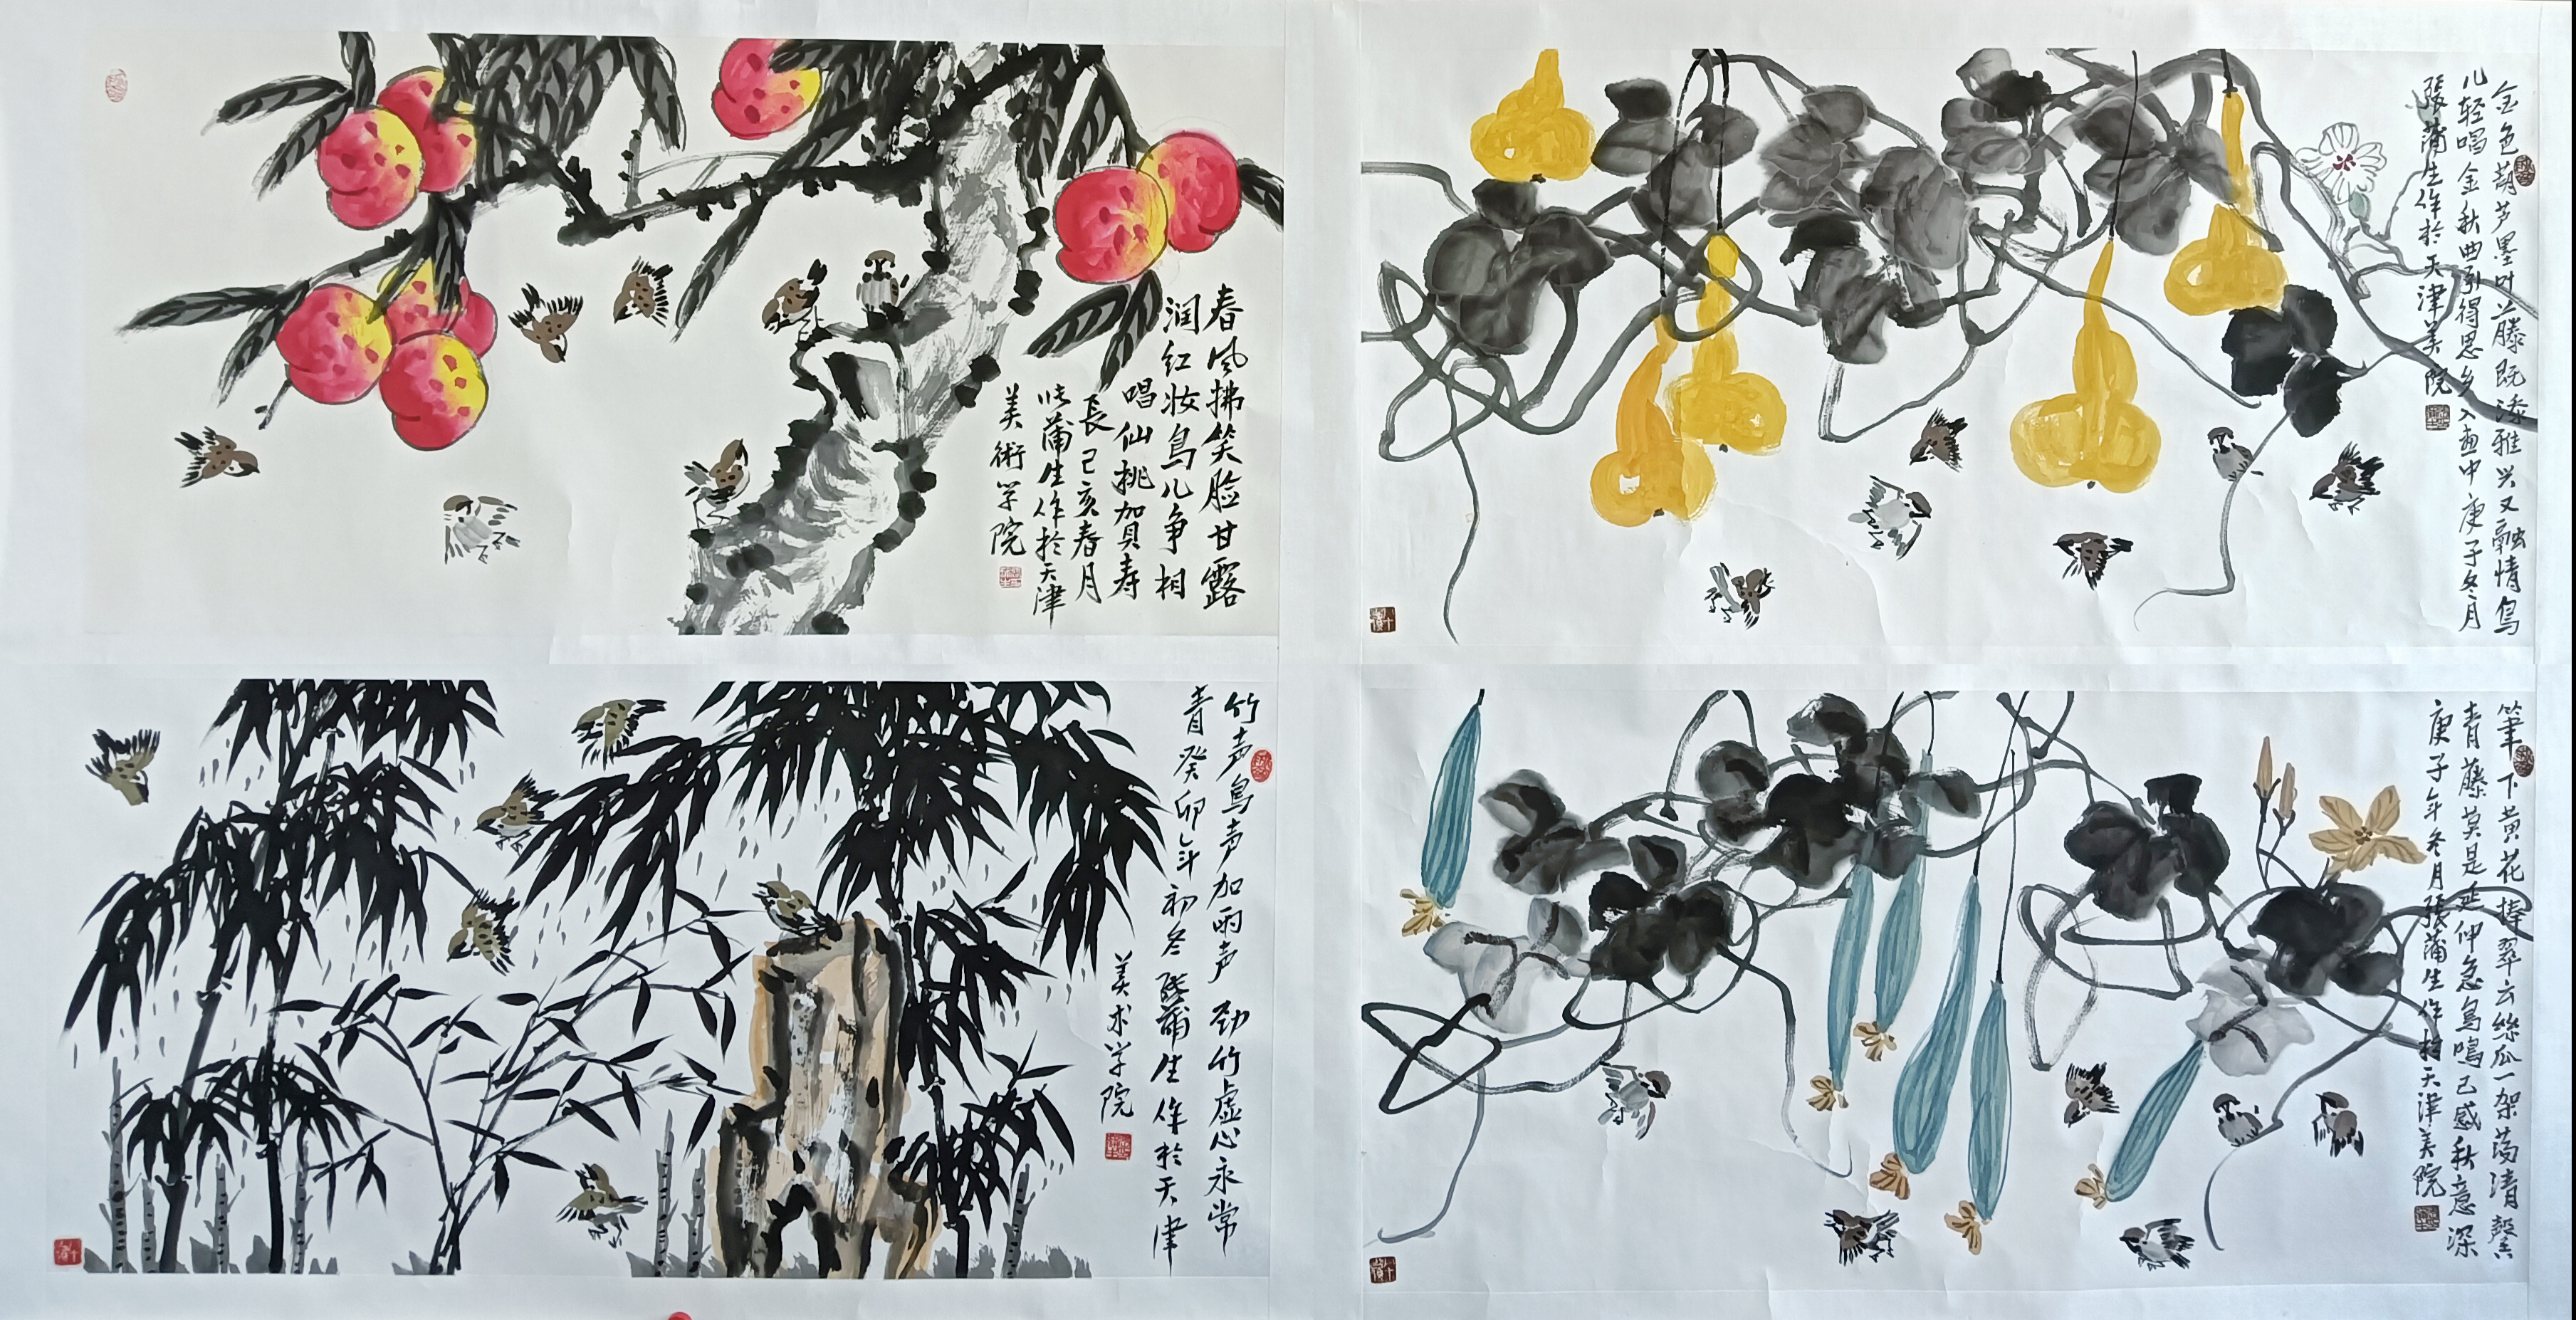 春风拂笑脸甘露
润红妆鸟儿争相
唱仙桃加贝寿
長己亥春月
张蒲生作於天津
美術学院
金色葫芦墨叶上藤既添雅兴又融情鸟
儿轻唱金秋曲引得思乡入画中庚子冬月
張蒲生作於天津美院
竹声鸟声加雨声劲竹虚心永常
青癸卯年初冬張蒲生作於天津
美术学院
筆下黄花捧翠云丝瓜一架蒟清馨
青藤莫是延伸急鸟鳴已感秋意深
庚子年冬月張蒲生作於天津美院